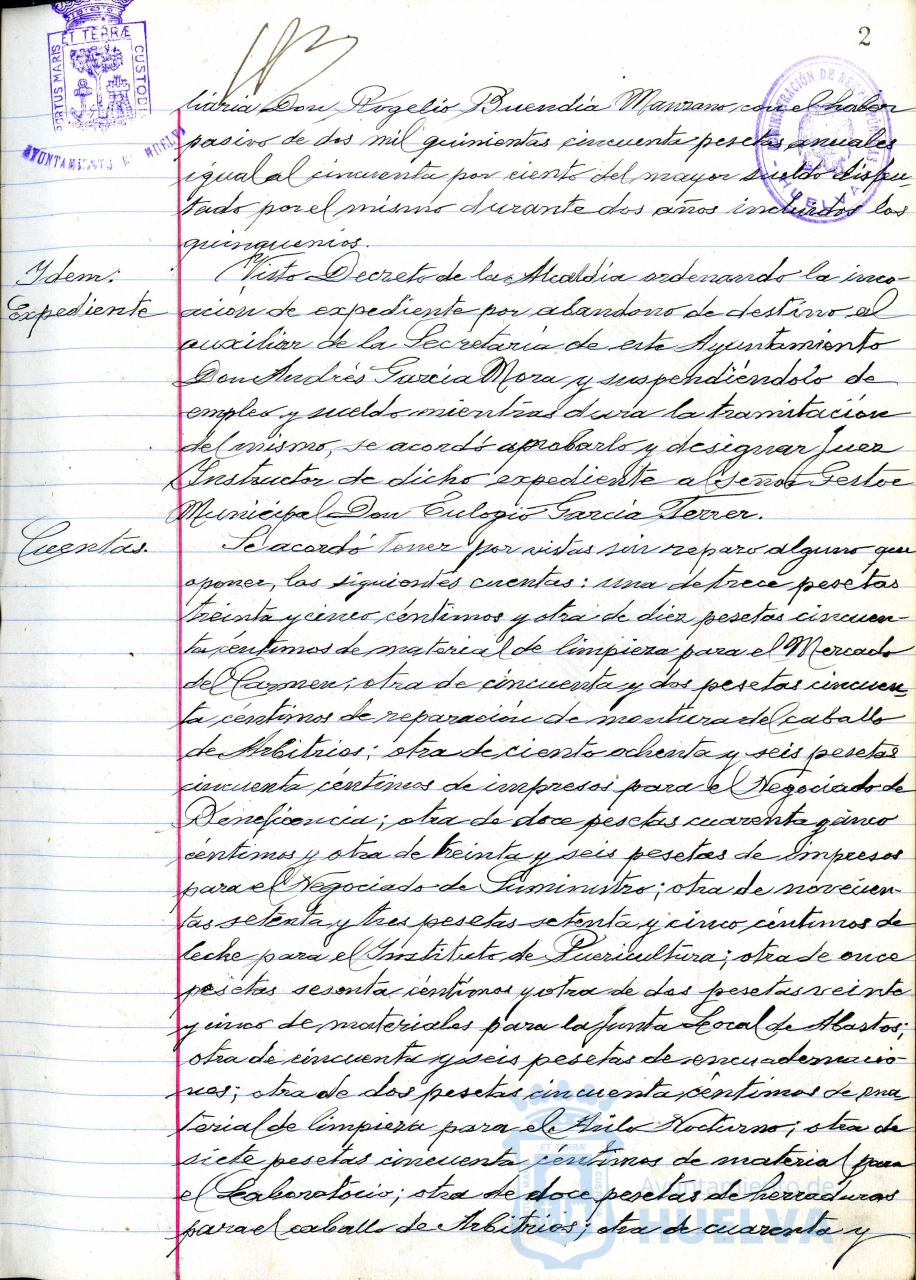 2
PORTUS MARIS
ET TERRÆ
CUSTODI
AYUNTAMIENTO DE HUELVA
HUELVA
liaria Don Rogelio Buendía Manzano, con el haber
pasivo de dos mil quinientas cincuenta pesetas anuales
igual al cincuenta por ciento del mayor sueldo disfru-
tado por el mismo durante dos años incluidos los
quinquenios.
Idem:
Expediente
Visto Decreto de la Alcaldía ordenando la inco-
ación de expediente por abandono de destino al
auxiliar de la Secretaría de este Ayuntamiento
Don Andrés García Mora y suspendiéndolo de
empleo y sueldo mientras dura la tramitación
del mismo, se acordó aprobarlo y designar Juez
Instructor de dicho expediente al Señor Gestor
Municipal Don Eulogio García Ferrer.
Cuentas.
Se acordó tener por vistas sin reparo alguno que
oponer, las siguientes cuentas: una de trece pesetas
treinta y cinco céntimos y otra de diez pesetas cincuen-
ta céntimos de material de limpieza para el Mercado
del Carmen; otra de cincuenta y dos pesetas cincuen-
ta céntimos de reparación de montura del caballo
de Arbitrios; otra de ciento ochenta y seis pesetas
cincuenta céntimos de impresos para el Negociado de
Beneficencia; otra de doce pesetas cuarenta y cinco
céntimos y otra de treinta y seis pesetas de impresos
para el Negociado de Suministro; otra de novecien-
tas setenta y tres pesetas setenta y cinco céntimos de
leche para el Instituto de Puericultura; otra de once
pesetas sesenta céntimos y otra de dos pesetas veinte
y cinco de materiales para la Junta Local de Abastos;
otra de cincuenta y seis pesetas de encuadernacio-
nes; otra de dos pesetas cincuenta céntimos de ma
terial de limpieza para el Asilo Nocturno; otra de
siete pesetas cincuenta céntimos de material para
el Laboratorio; otra de doce pesetas de herraduras
para el caballo de Arbitrios; otra de cuarenta y
Ayuntamiento de
HUELVA